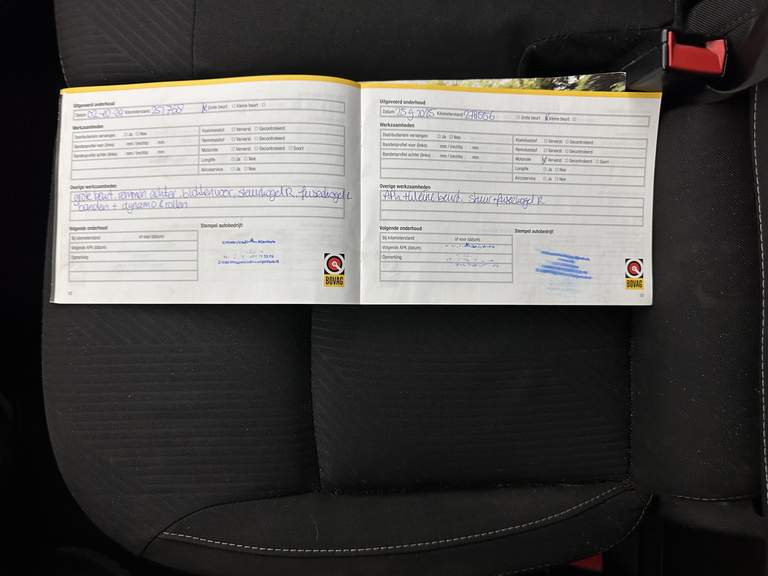 Uitgevoerd onderhoud
Datum Kilometerstand Grote beurt Kleine beurt
Werkzaamheden
Distributieriem vervangen Ja Nee
Bandenprofiel voor (links) mm / (rechts) mm
Bandenprofiel achter (links) mm / (rechts) mm
Koelvloeistof Ververst Gecontroleerd
Remvloeistof Ververst Gecontroleerd
Motorolie Ververst Gecontroleerd Soort
Longlife Ja Nee
Aircoservice Ja Nee
Overige werkzaamheden
grote beurt, remmen achter, stuurkogel R, fuseekogel
banden + dynamo & rollen
Volgende onderhoud
Bij kilometerstand of voor (datum)
Volgende APK (datum)
Opmerking
Stempel autobedrijf:
BOVAG
Uitgevoerd onderhoud
Datum 25-9-2025 Kilometerstand Grote beurt Kleine beurt
Werkzaamheden
Distributieriem vervangen Ja Nee
Bandenprofiel voor (links) mm / (rechts) mm
Bandenprofiel achter (links) mm / (rechts) mm
Koelvloeistof Ververst Gecontroleerd
Remvloeistof Ververst Gecontroleerd
Motorolie Ververst Gecontroleerd Soort
Longlife Ja Nee
Aircoservice Ja Nee
Overige werkzaamheden
APK + kleine beurt, stuur + fuseekogel R
Volgende onderhoud
Bij kilometerstand of voor (datum)
Volgende APK (datum)
Opmerking
Stempel autobedrijf:
BOVAG